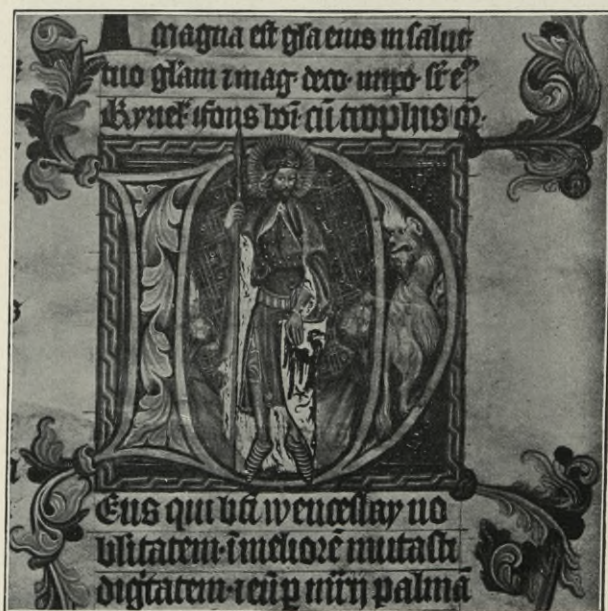 magna est gl̄a eius in salut
tuo gl̄am ⁊ mag deco inpo
Kyriel fons boī cū trophis
Eus qui bt̄i wenceslay no
blitatem ī meliorē mutasti
digtatem palmā